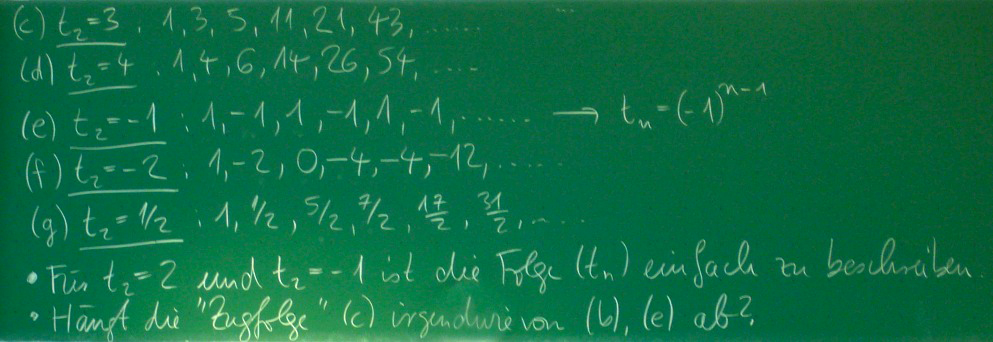 (c) t₂=3 : 1, 3, 5, 11, 21, 43, ......
(d) t₂=4 : 1, 4, 6, 14, 26, 54, ....
(e) t₂=-1 : 1, -1, 1, -1, 1, -1, ...... → tₙ = (-1)ⁿ⁻¹
(f) t₂=-2 : 1, -2, 0, -4, -4, -12, ......
(g) t₂=1/2 : 1, 1/2, 5/2, 7/2, 17/2, 31/2, ......
• Für t₂=2 und t₂=-1 ist die Folge (tₙ) einfach zu beschreiben.
• Hängt die "Zugfolge" (c) irgendwie von (b), (e) ab?